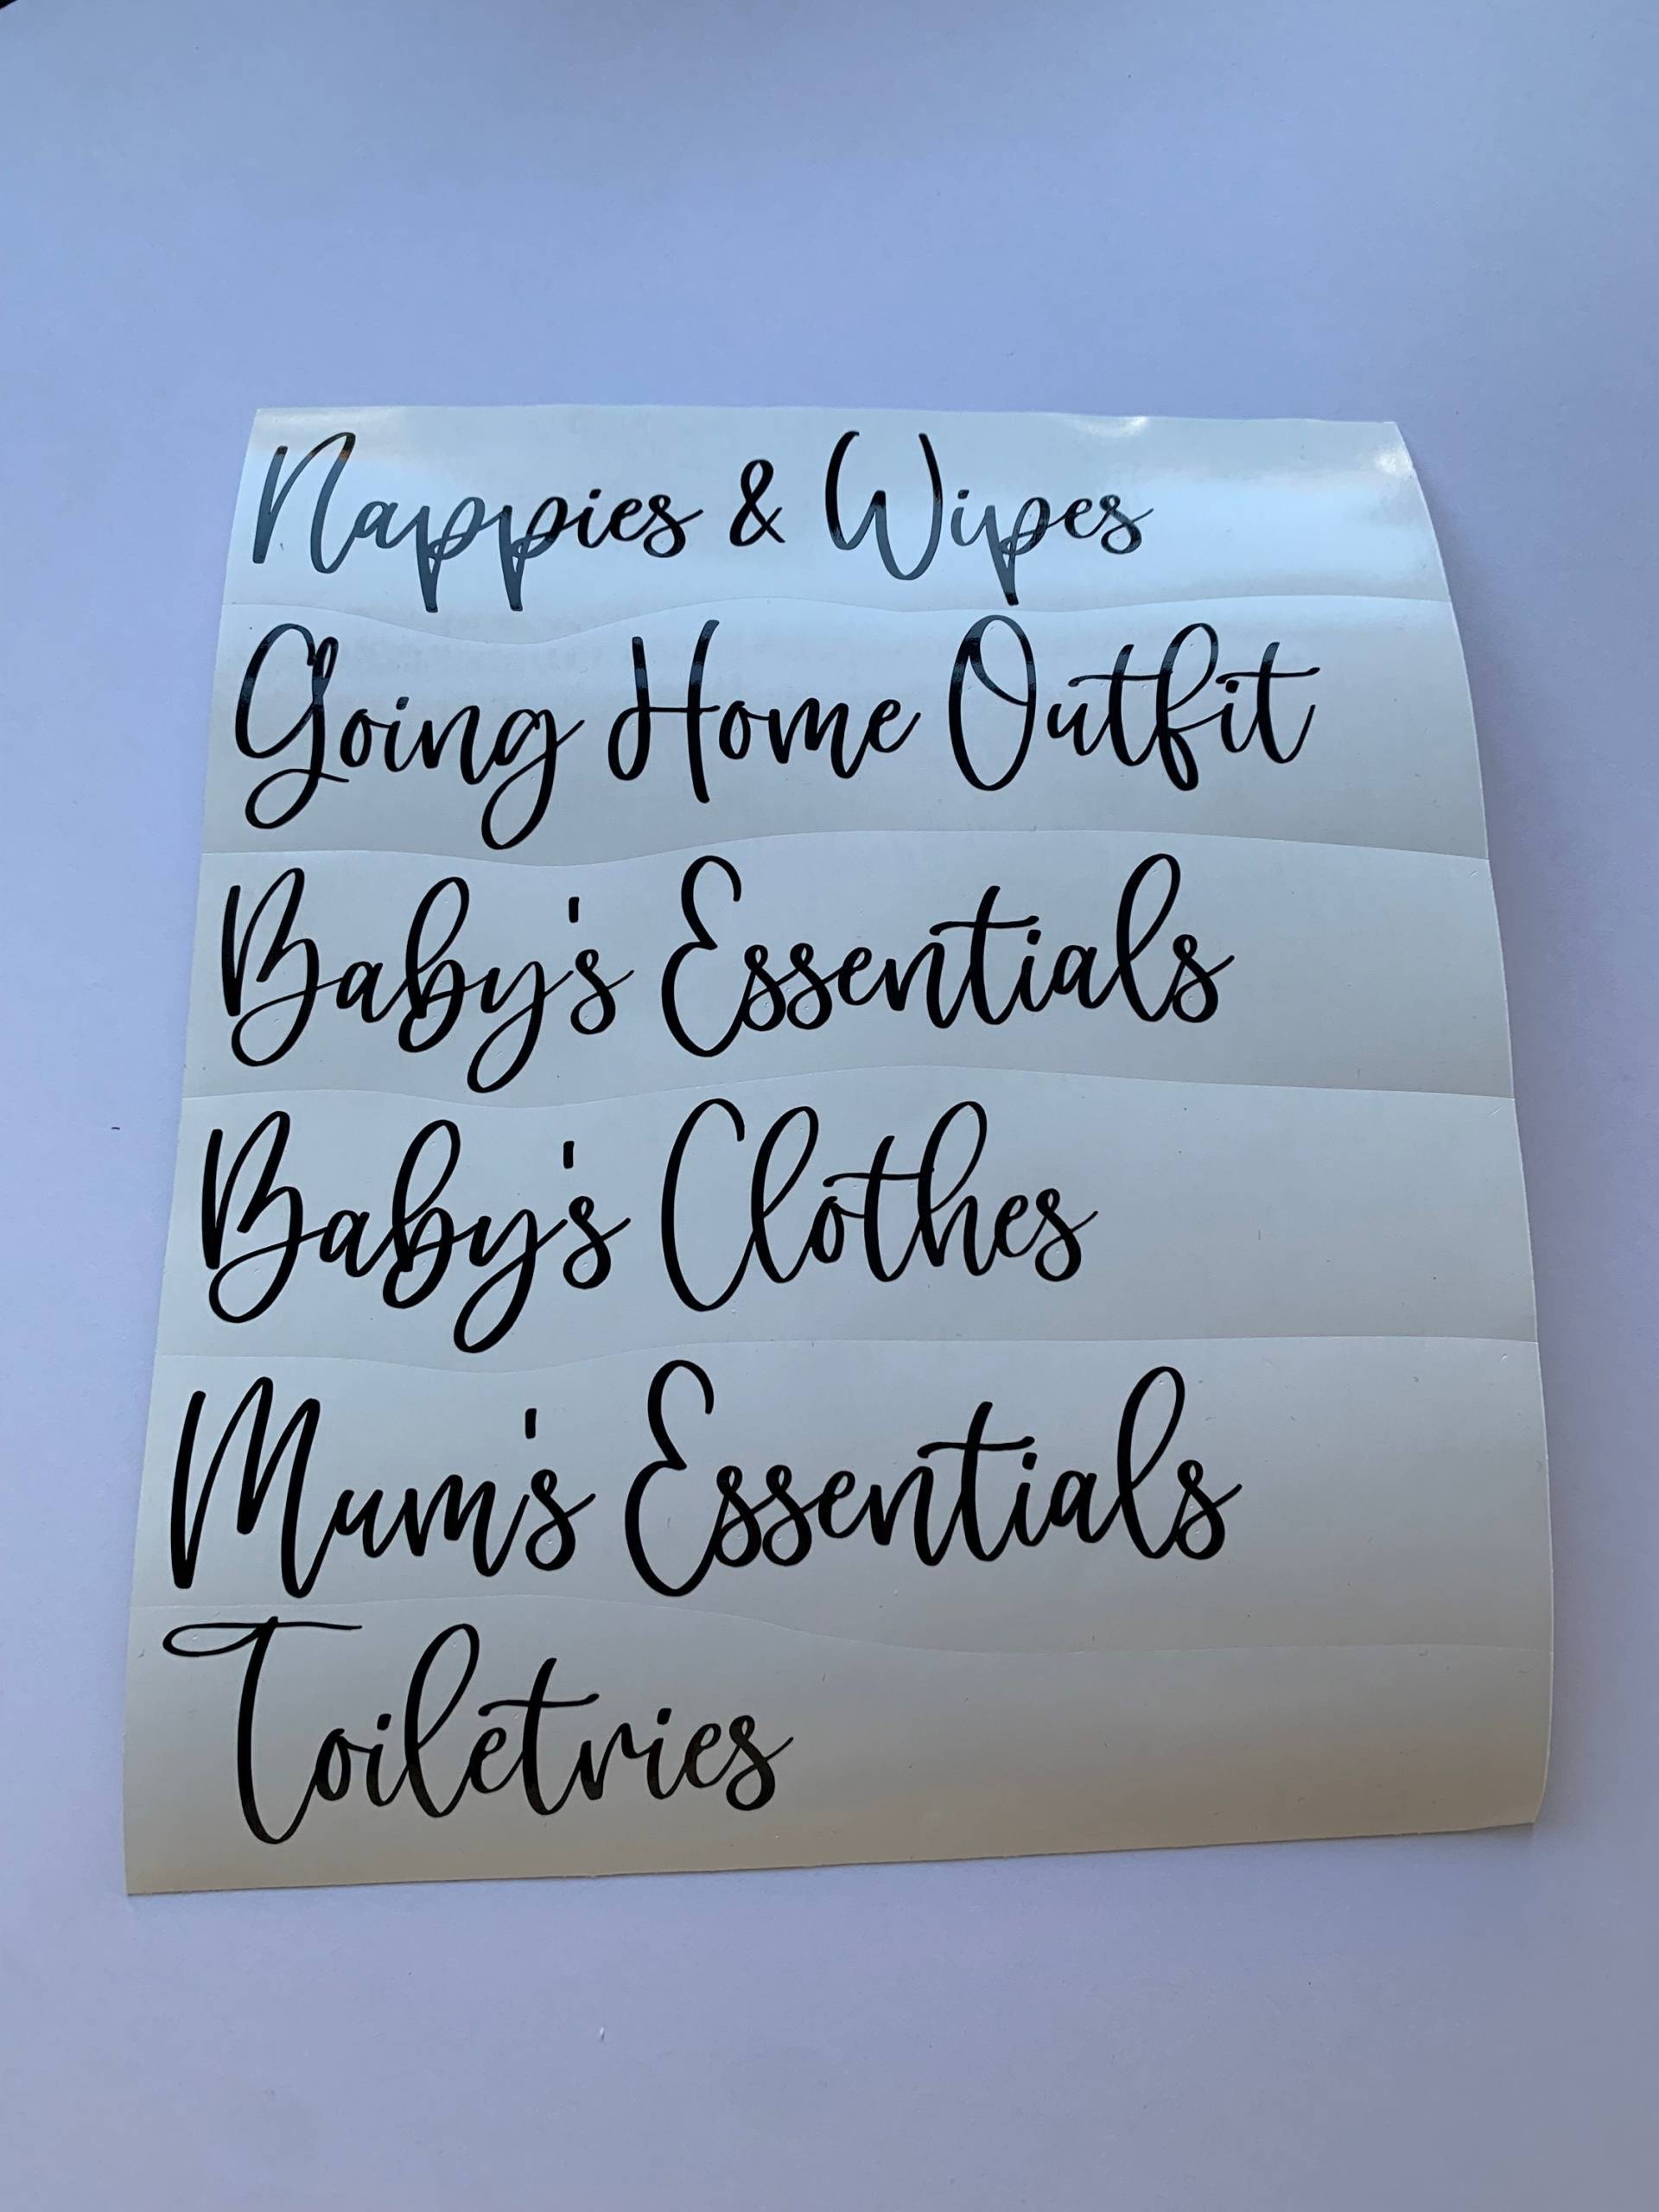 Nappies & Wipes
Going Home Outfit
Baby's Essentials
Baby's Clothes
Mum's Essentials
Toiletries